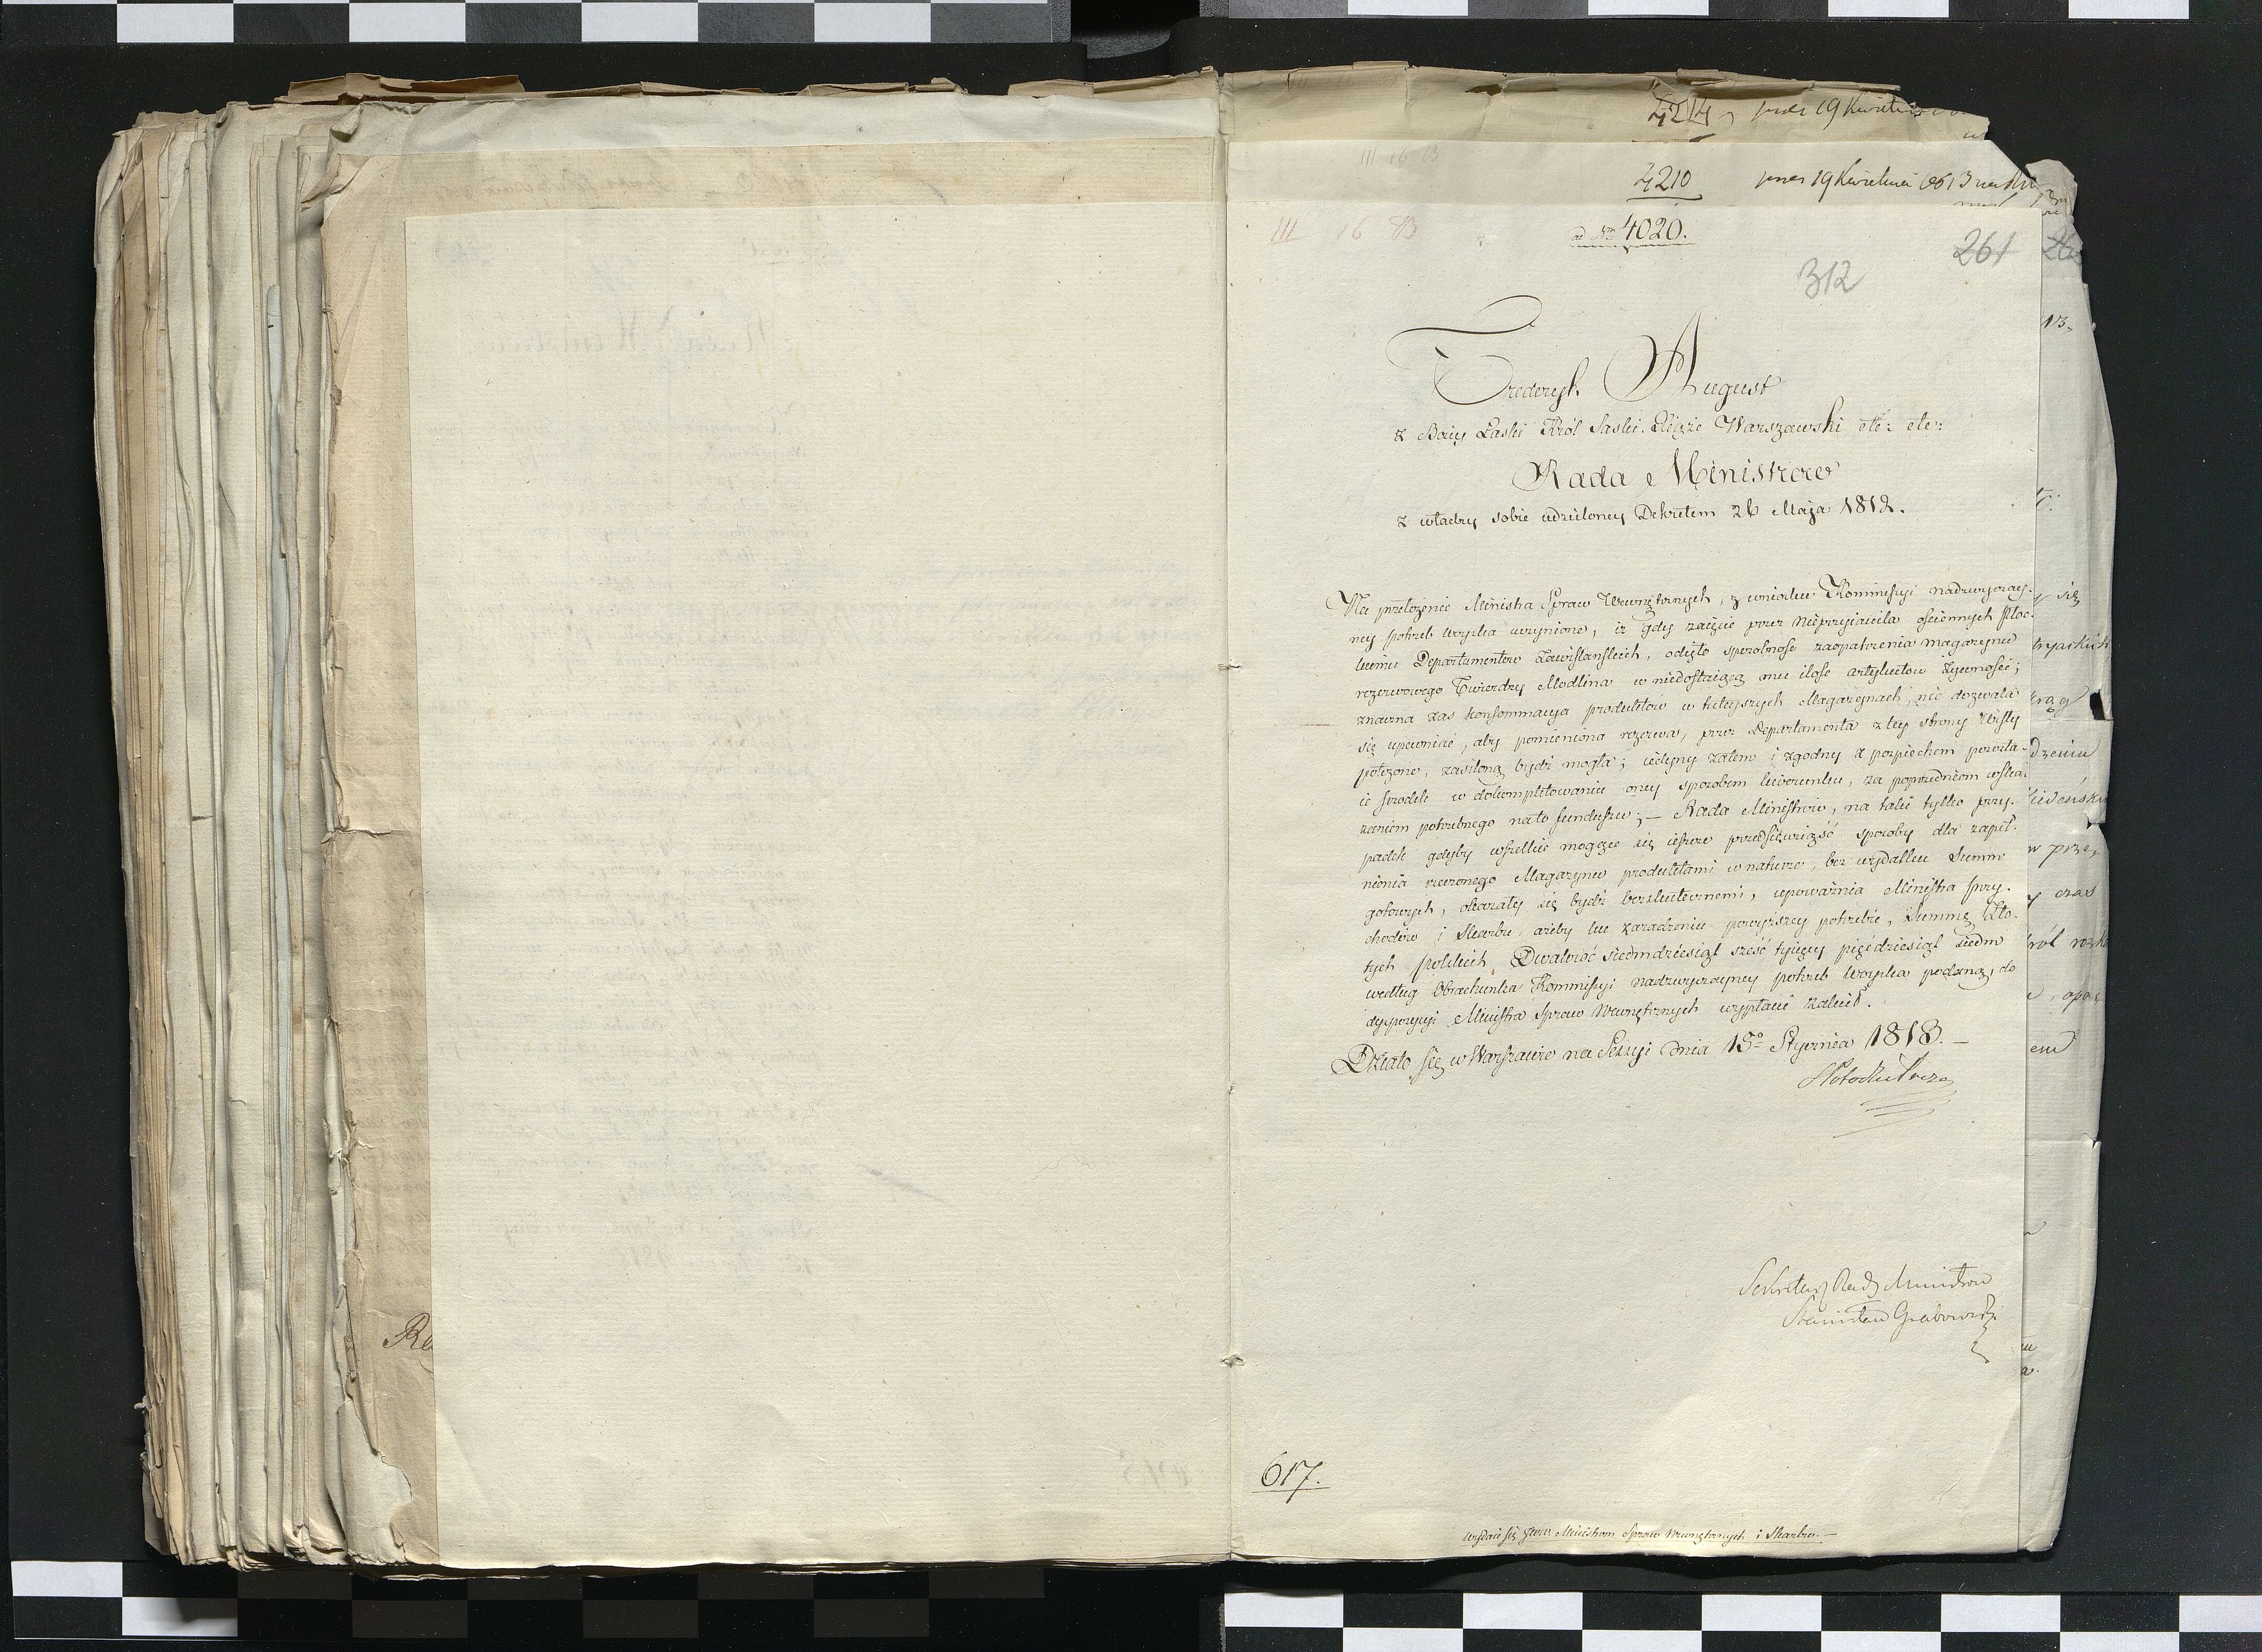 4214 przez 19 Kwietnia
III 16 B
4210 przez 19 Kwietnia 1813
III 16 B
ad Nm 4020.
261
312
Frederyk August
z Bożey Łaski Król Saski. Xiąże Warszawski etc: etc:
Rada Ministrow
z władzy sobie udzieloney Dekretem 26 Maja 1812.
Na przełożenie Ministra Spraw Wewnętrznych, z wniosku Kommissyi nadzwyczay-
ney potrzeb woyska uczynione, iż gdy zaięcie przez nieprzyiaciela ościennych Płoc-
kiemu Departamentow Zawislanskich, odięło sposobnosc zaopatrzenia magazynu
rezerwowego Twierdzy Modlina w niedostaiącą mu ilosc artykułow żywności;
znaczna zas konsommacya produktów w tuteyszych Magazynach, nie dozwala
się upewniać, aby pomieniona rezerwa, przez Departamenta z tey strony Wisły
położone, zasiloną bydź mogła; iedyny zatem i zgodny z pospiechem pozosta-
ie srodek w dokompletowaniu oney sposobem liwerunku, za poprzedniem wska-
zaniem potrzebnego na to funduszu; — Rada Ministrów, na taki tylko przy-
padek gdyby wszelkie mogące się ieszcze przedsięwziąść sposoby dla zapeł-
nienia rzeczonego Magazynu produktami w naturze, bez wydatku Summ
gotowych, okazały się bydź bezskutecznemi, upoważnia Ministra Przy-
chodów i Skarbu, ażeby ku zaradzeniu powyższey potrzebie, Summę Zło-
tych polskich Dwakroć siedmdziesiąt sześć tysięcy pięćdziesiąt siedm
według Obrachunku Kommissyi nadzwyczayney potrzeb woyska podaną, do
dyspozycyi Ministra Spraw Wewnętrznych wypłacić zalecił.
Działo się w Warszawie na Sessyi dnia 15° Stycznia 1813. —
SPotocki Prezes
Sekretarz Rady Ministrow
Stanisław Grabowski
617.
wydaie się JWW. Ministrom Spraw Wewnętrznych i Skarbu. —